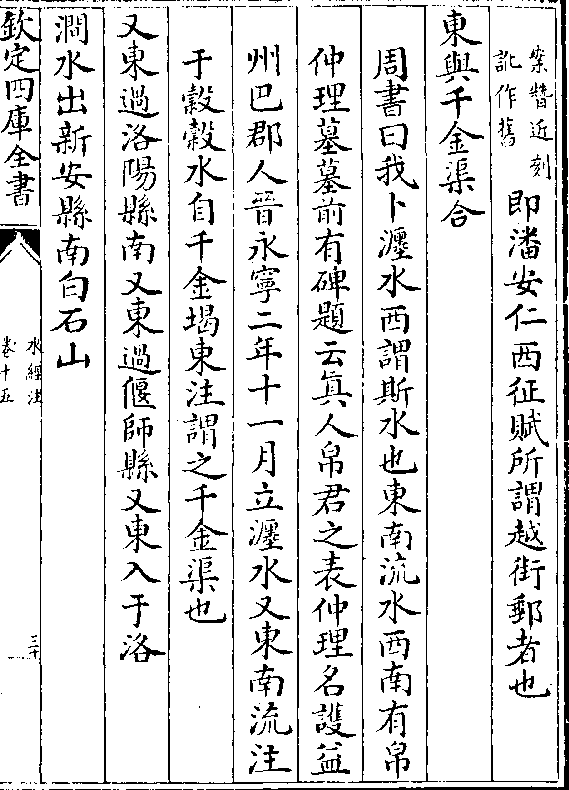 案瞽近刻
訛作舊
即潘安仁西征賦所謂越街郵者也
東與千金渠合
周書曰我卜瀍水西謂斯水也東南流水西南有帛
仲理墓墓前有碑題云眞人帛君之表仲理名護益
州巴郡人晉永寧二年十一月立瀍水又東南流注
于穀穀水自千金堨東注謂之千金渠也
又東過洛陽縣南又東過偃師縣又東入于洛
澗水出新安縣南白石山
欽定四庫全書
水經注
卷十五
三十